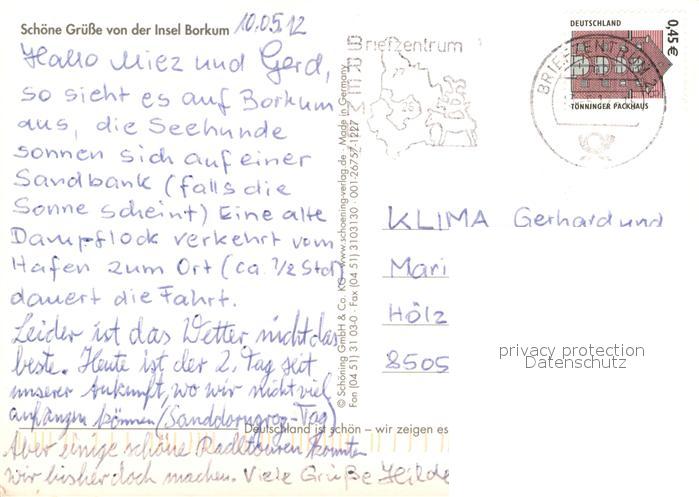 Schöne Grüße von der Insel Borkum 10.05.12
Hallo Miez und Gerd,
so sieht es auf Borkum
aus, die Seehunde
sonnen sich auf einer
Sandbank (falls die
Sonne scheint) Eine alte
Dampflock verkehrt vom
Hafen zum Ort (ca. 1/2 Std)
dauert die Fahrt.
Leider ist das Wetter nicht das
beste. Heute ist der 2. Tag seit
unserer Ankunft, wo wir nicht viel
anfangen können (Sanddorngrog-Tag)
Aber einige schöne Radltouren konnten
wir bisher doch machen. Viele Grüße Hilde
© Schöning GmbH & Co. KG · www.schoening-verlag.de · Made in Germany
Fon (04 51) 31 03-0 · Fax (04 51) 3103130 · 001-26757-1227
Deutschland ist schön – wir zeigen es
Briefzentrum
BRIEFZENTRUM
DEUTSCHLAND
0,45€
TÖNNINGER PACKHAUS
KLIMA Gerhard und
Mari
Hölz
8505
privacy protection
Datenschutz